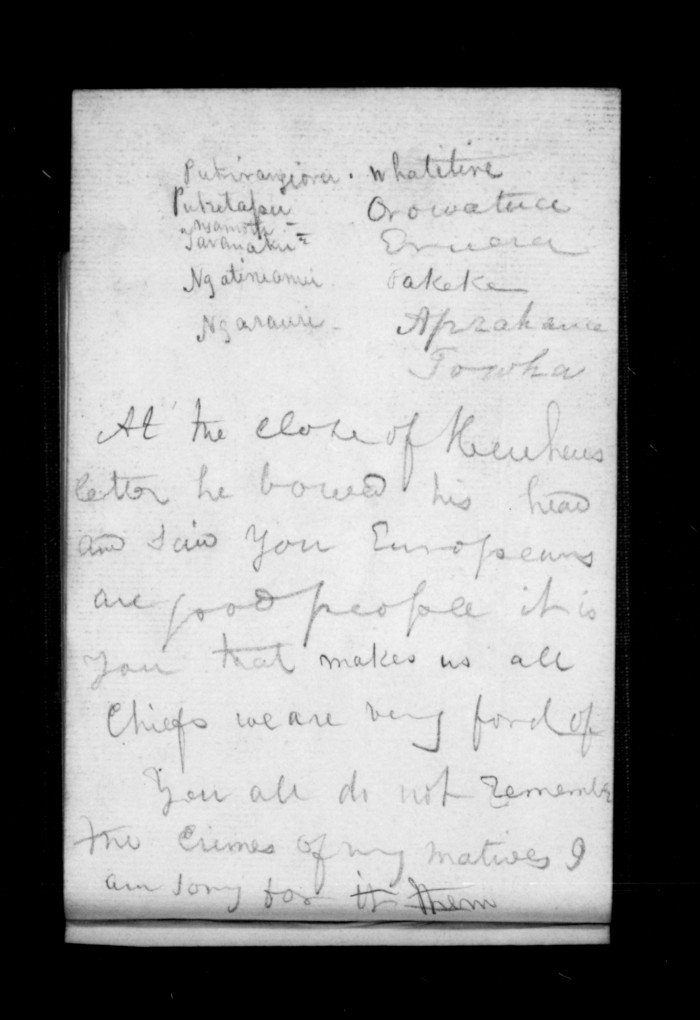 Pukirangiora . Whatitire
Puketapu Orowatua
Ngamotu
Taranaki Eruera
Ngatiruanui Pakeke
Ngarauri Aperahama
Towha
At the close of Heuheus
letter he bowed his head
and said You Europeans
are good people it is
you that makes us all
Chiefs we are very fond of
You all do not remember
the Crimes of my natives I
am sorry for it them